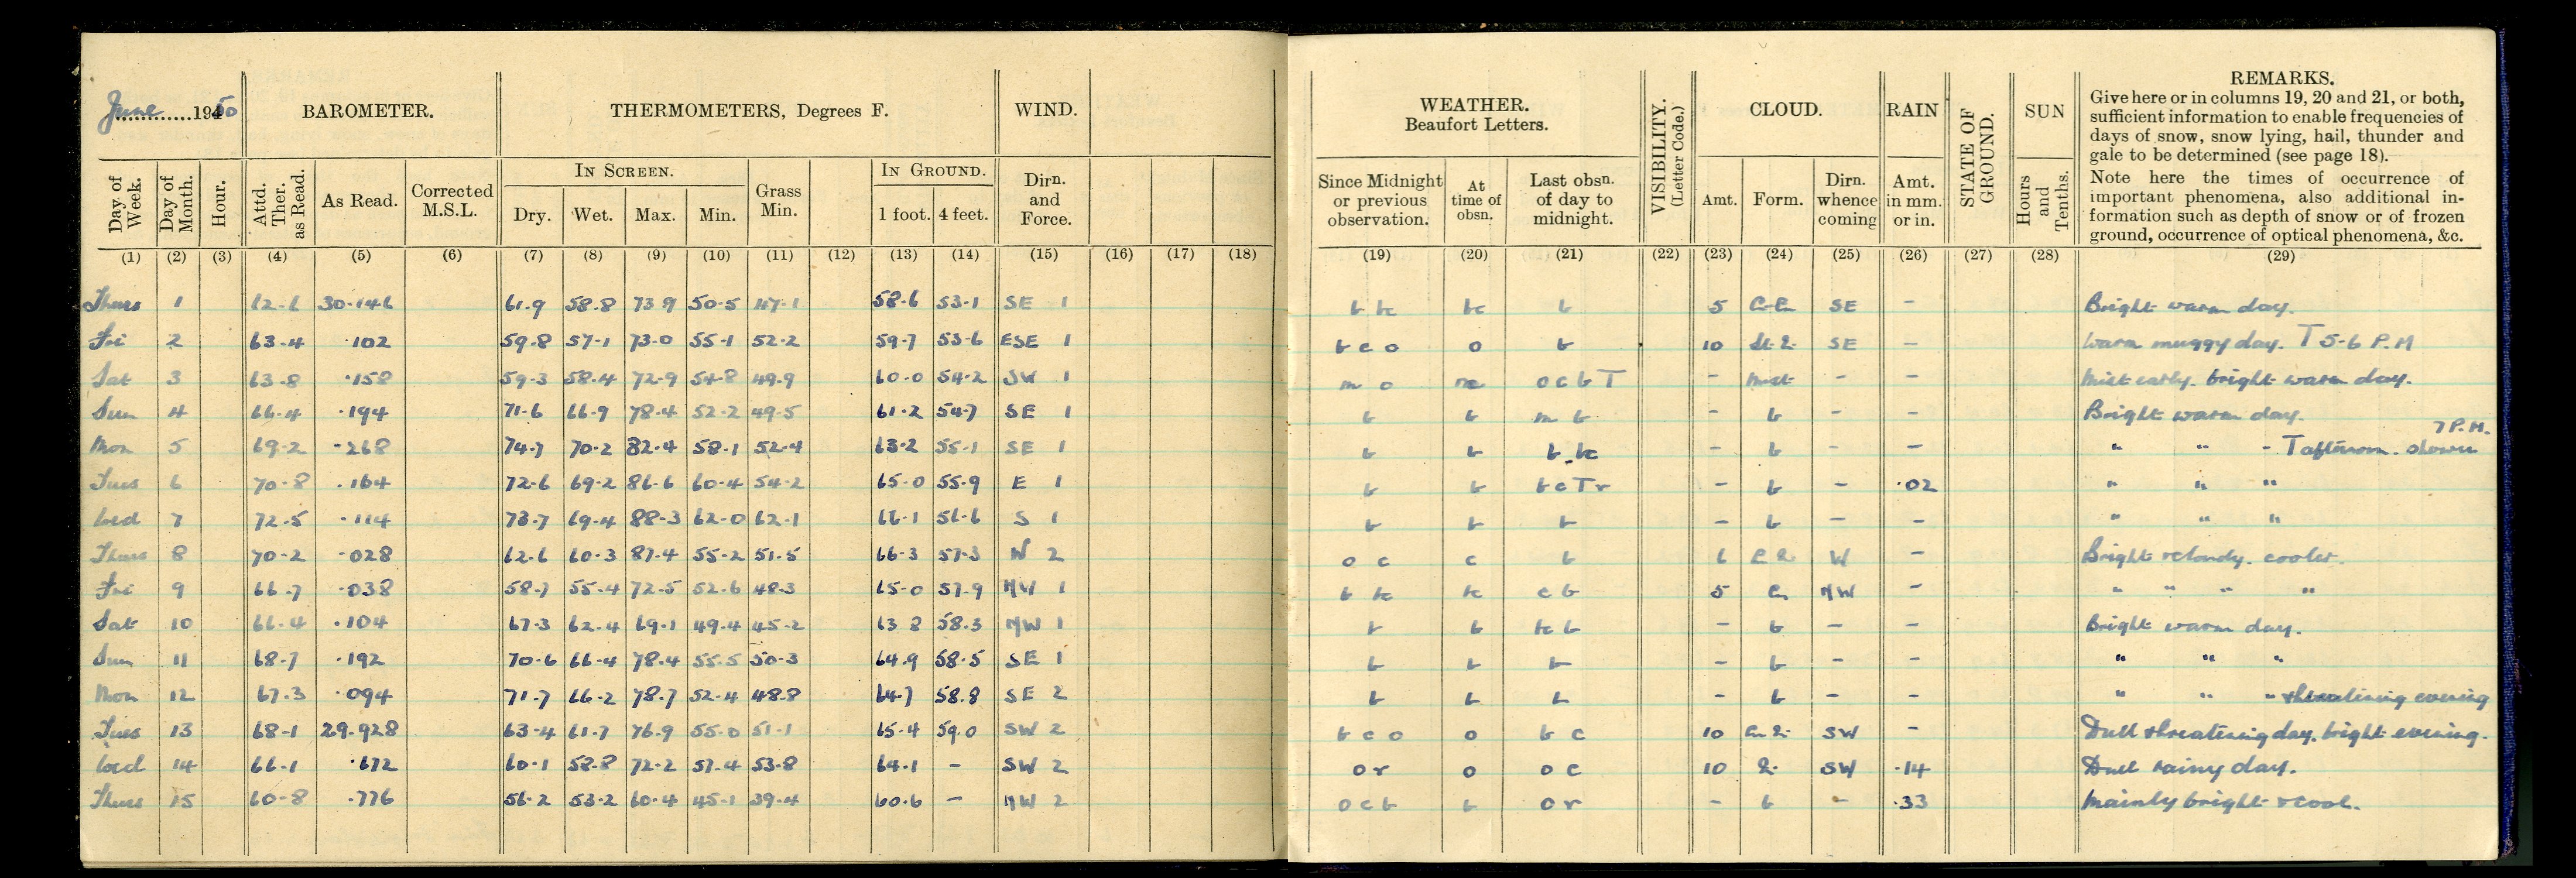 June 1950
BAROMETER.
THERMOMETERS, Degrees F.
WIND.
WEATHER.
Beaufort Letters.
VISIBILITY.
(Letter Code.)
CLOUD.
RAIN
STATE OF GROUND.
SUN
REMARKS.
Give here or in columns 19, 20 and 21, or both,
sufficient information to enable frequencies of
days of snow, snow lying, hail, thunder and
gale to be determined (see page 18).
Note here the times of occurrence of
important phenomena, also additional in-
formation such as depth of snow or of frozen
ground, occurrence of optical phenomena, &c.
Day of Week. Day of Month. Hour. Attd. Ther. as Read. As Read. Corrected M.S.L.
IN SCREEN. Dry. Wet. Max. Min. Grass Min. IN GROUND. 1 foot. 4 feet. Dirn. and Force.
Since Midnight or previous observation. At time of obsn. Last obsn. of day to midnight. Amt. Form. Dirn. whence coming Amt. in mm. or in. Hours and Tenths.
(1) (2) (3) (4) (5) (6) (7) (8) (9) (10) (11) (12) (13) (14) (15) (16) (17) (18) (19) (20) (21) (22) (23) (24) (25) (26) (27) (28) (29)
Thurs 1 62.6 30.146 61.9 58.8 73.9 50.5 47.1 58.6 53.1 SE 1 b bc bc b 5 SE - Bright warm day.
Fri 2 63.4 .102 59.8 57.1 73.0 55.1 52.2 59.7 53.6 ESE 1 b c o o b 10 SE - Warm muggy day. T 5-6 P.M
Sat 3 63.8 .158 59.3 58.4 72.9 54.8 49.9 60.0 54.2 SW 1 m o m o c b T - Mist - - Mist early. bright warm day.
Sun 4 66.4 .194 71.6 66.9 78.4 52.2 49.5 61.2 54.7 SE 1 b b m b - b - - Bright warm day.
Mon 5 69.2 .268 74.7 70.2 82.4 58.1 52.4 63.2 55.1 SE 1 b b b bc - b - - " " - T afternoon. shower 7 P.M.
Tues 6 70.8 .164 72.6 69.2 86.6 60.4 54.2 65.0 55.9 E 1 b b b c T r - b - .02 " " "
Wed 7 72.5 .114 73.7 69.4 88.3 62.0 62.1 66.1 56.6 S 1 b b b - b - - " " "
Thurs 8 70.2 .028 62.6 60.3 87.4 55.2 51.5 66.3 57.3 W 2 o c c b 6 W - Bright & cloudy. cooler.
Fri 9 66.7 .038 58.7 55.4 72.5 52.6 48.3 65.0 57.9 NW 1 b bc bc c b 5 NW - " " " "
Sat 10 66.4 .104 67.3 62.4 69.1 49.4 45.2 63 8 58.3 NW 1 b b bc b - b - - Bright warm day.
Sun 11 68.7 .192 70.6 66.4 78.4 55.5 50.3 64.9 58.5 SE 1 b b b - b - - " " "
Mon 12 67.3 .094 71.7 66.2 78.7 52.4 48.8 64.7 58.8 SE 2 b b b - b - - " " " threatening evening
Tues 13 68.1 29.928 63.4 61.7 76.9 55.0 51.1 65.4 59.0 SW 2 b c o o b c 10 SW - Dull threatening day. bright evening.
Wed 14 66.1 .672 60.1 58.8 72.2 57.4 53.8 64.1 - SW 2 o r o o c 10 SW .14 Dull rainy day.
Thurs 15 60.8 .776 56.2 53.2 60.4 45.1 39.4 60.6 - NW 2 o c b b o r - b - .33 Mainly bright & cool.